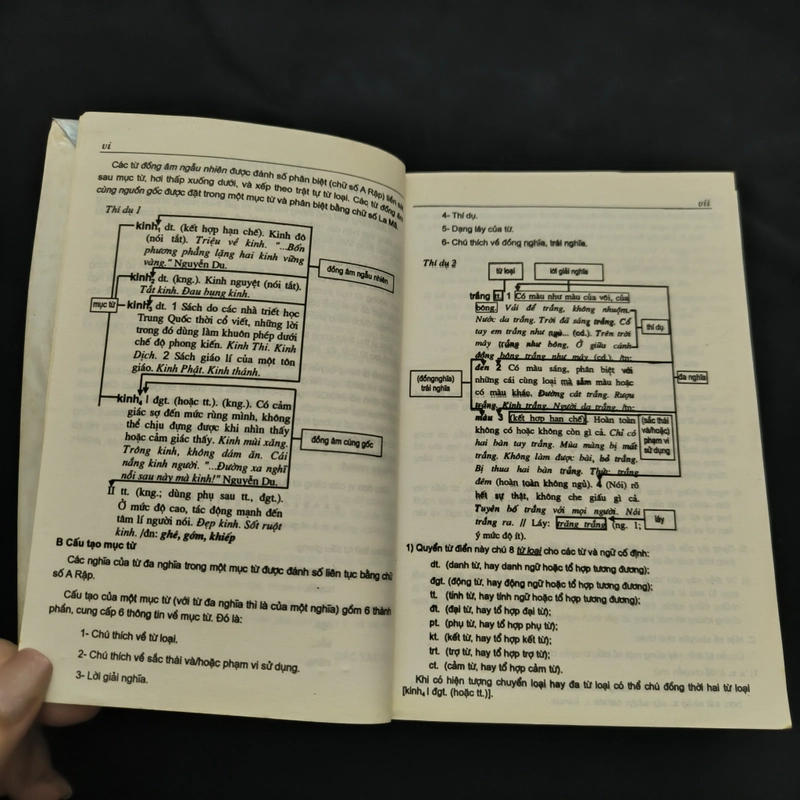 vi
Các từ đồng âm ngẫu nhiên được đánh số phân biệt (chữ số A Rập) liền
sau mục từ, hơi thấp xuống dưới, và xếp theo trật tự từ loại. Các từ đồng âm
cùng nguồn gốc được đặt trong một mục từ và phân biệt bằng chữ số La Mã.
Thí dụ 1
kinh, dt. (kết hợp hạn chế). Kinh đô
(nói tắt). Triệu về kinh. "...Bốn
phương phẳng lặng hai kinh vững
vàng." Nguyễn Du.
đồng âm ngẫu nhiên
kinh, dt. (kng.). Kinh nguyệt (nói tắt).
Tắt kinh. Đau bụng kinh.
mục từ
kinh, dt. 1 Sách do các nhà triết học
Trung Quốc thời cổ viết, những lời
trong đó dùng làm khuôn phép dưới
chế độ phong kiến. Kinh Thi. Kinh
Dịch. 2 Sách giáo lí của một tôn
giáo. Kinh Phật. Kinh thánh.
kinh, I đgt. (hoặc tt.). (kng.). Có cảm
giác sợ đến mức rùng mình, không
thể chịu đựng được khi nhìn thấy
hoặc cảm giác thấy. Kinh mùi xăng.
Trông kinh, không dám ăn. Cái
nắng kinh người. "...Đường xa nghĩ
nỗi sau này mà kinh!" Nguyễn Du.
đồng âm cùng gốc
II tt. (kng.; dùng phụ sau tt., đgt.).
Ở mức độ cao, tác động mạnh đến
tâm lí người nói. Đẹp kinh. Sốt ruột
kinh. /đn: ghê, gớm, khiếp
B Cấu tạo mục từ
Các nghĩa của từ đa nghĩa trong một mục từ được đánh số liên tục bằng chữ
số A Rập.
Cấu tạo của một mục từ (với từ đa nghĩa thì là của một nghĩa) gồm 6 thành
phần, cung cấp 6 thông tin về mục từ. Đó là:
1- Chú thích về từ loại.
2- Chú thích về sắc thái và/hoặc phạm vi sử dụng.
3- Lời giải nghĩa.
vii
4- Thí dụ.
5- Dạng láy của từ.
6- Chú thích về đồng nghĩa, trái nghĩa.
Thí dụ 2
từ loại
lời giải nghĩa
trắng tt. 1 Có màu như màu của vôi, của
bông. Vải để trắng, không nhuộm.
Nước da trắng. Trời đã sáng trắng. Cổ
tay em trắng như ngà... (cd.). Trên trời
mây trắng như bông, Ở giữa cánh
đồng bông trắng như mây (cd.). /tn:
thí dụ
đen 2 Có màu sáng, phân biệt với
những cái cùng loại mà sẫm màu hoặc
có màu khác. Đường cát trắng. Rượu
trắng. Kính trắng. Người da trắng. /tn:
(đồngnghĩa)
trái nghĩa
đa nghĩa
màu 3 (kết hợp hạn chế). Hoàn toàn
không có hoặc không còn gì cả. Chỉ có
hai bàn tay trắng. Mùa màng bị mất
trắng. Không làm được bài, bỏ trắng.
Bị thua hai bàn trắng. Thức trắng
(sắc thái
và/hoặc)
phạm vi
sử dụng
đêm (hoàn toàn không ngủ). 4 (Nói) rõ
hết sự thật, không che giấu gì cả.
Tuyên bố trắng với mọi người. Nói
trắng ra. // Láy: trăng trắng (ng. 1;
ý mức độ ít).
láy
1) Quyển từ điển này chú 8 từ loại cho các từ và ngữ cố định:
dt. (danh từ, hay danh ngữ hoặc tổ hợp tương đương);
đgt. (động từ, hay động ngữ hoặc tổ hợp tương đương);
tt. (tính từ, hay tính ngữ hoặc tổ hợp tương đương);
đt. (đại từ, hay tổ hợp đại từ);
pt. (phụ từ, hay tổ hợp phụ từ);
kt. (kết từ, hay tổ hợp kết từ);
trt. (trợ từ, hay tổ hợp trợ từ);
ct. (cảm từ, hay tổ hợp cảm từ).
Khi có hiện tượng chuyển loại hay đa từ loại có thể chú đồng thời hai từ loại
[kinh₄ I đgt. (hoặc tt.)].